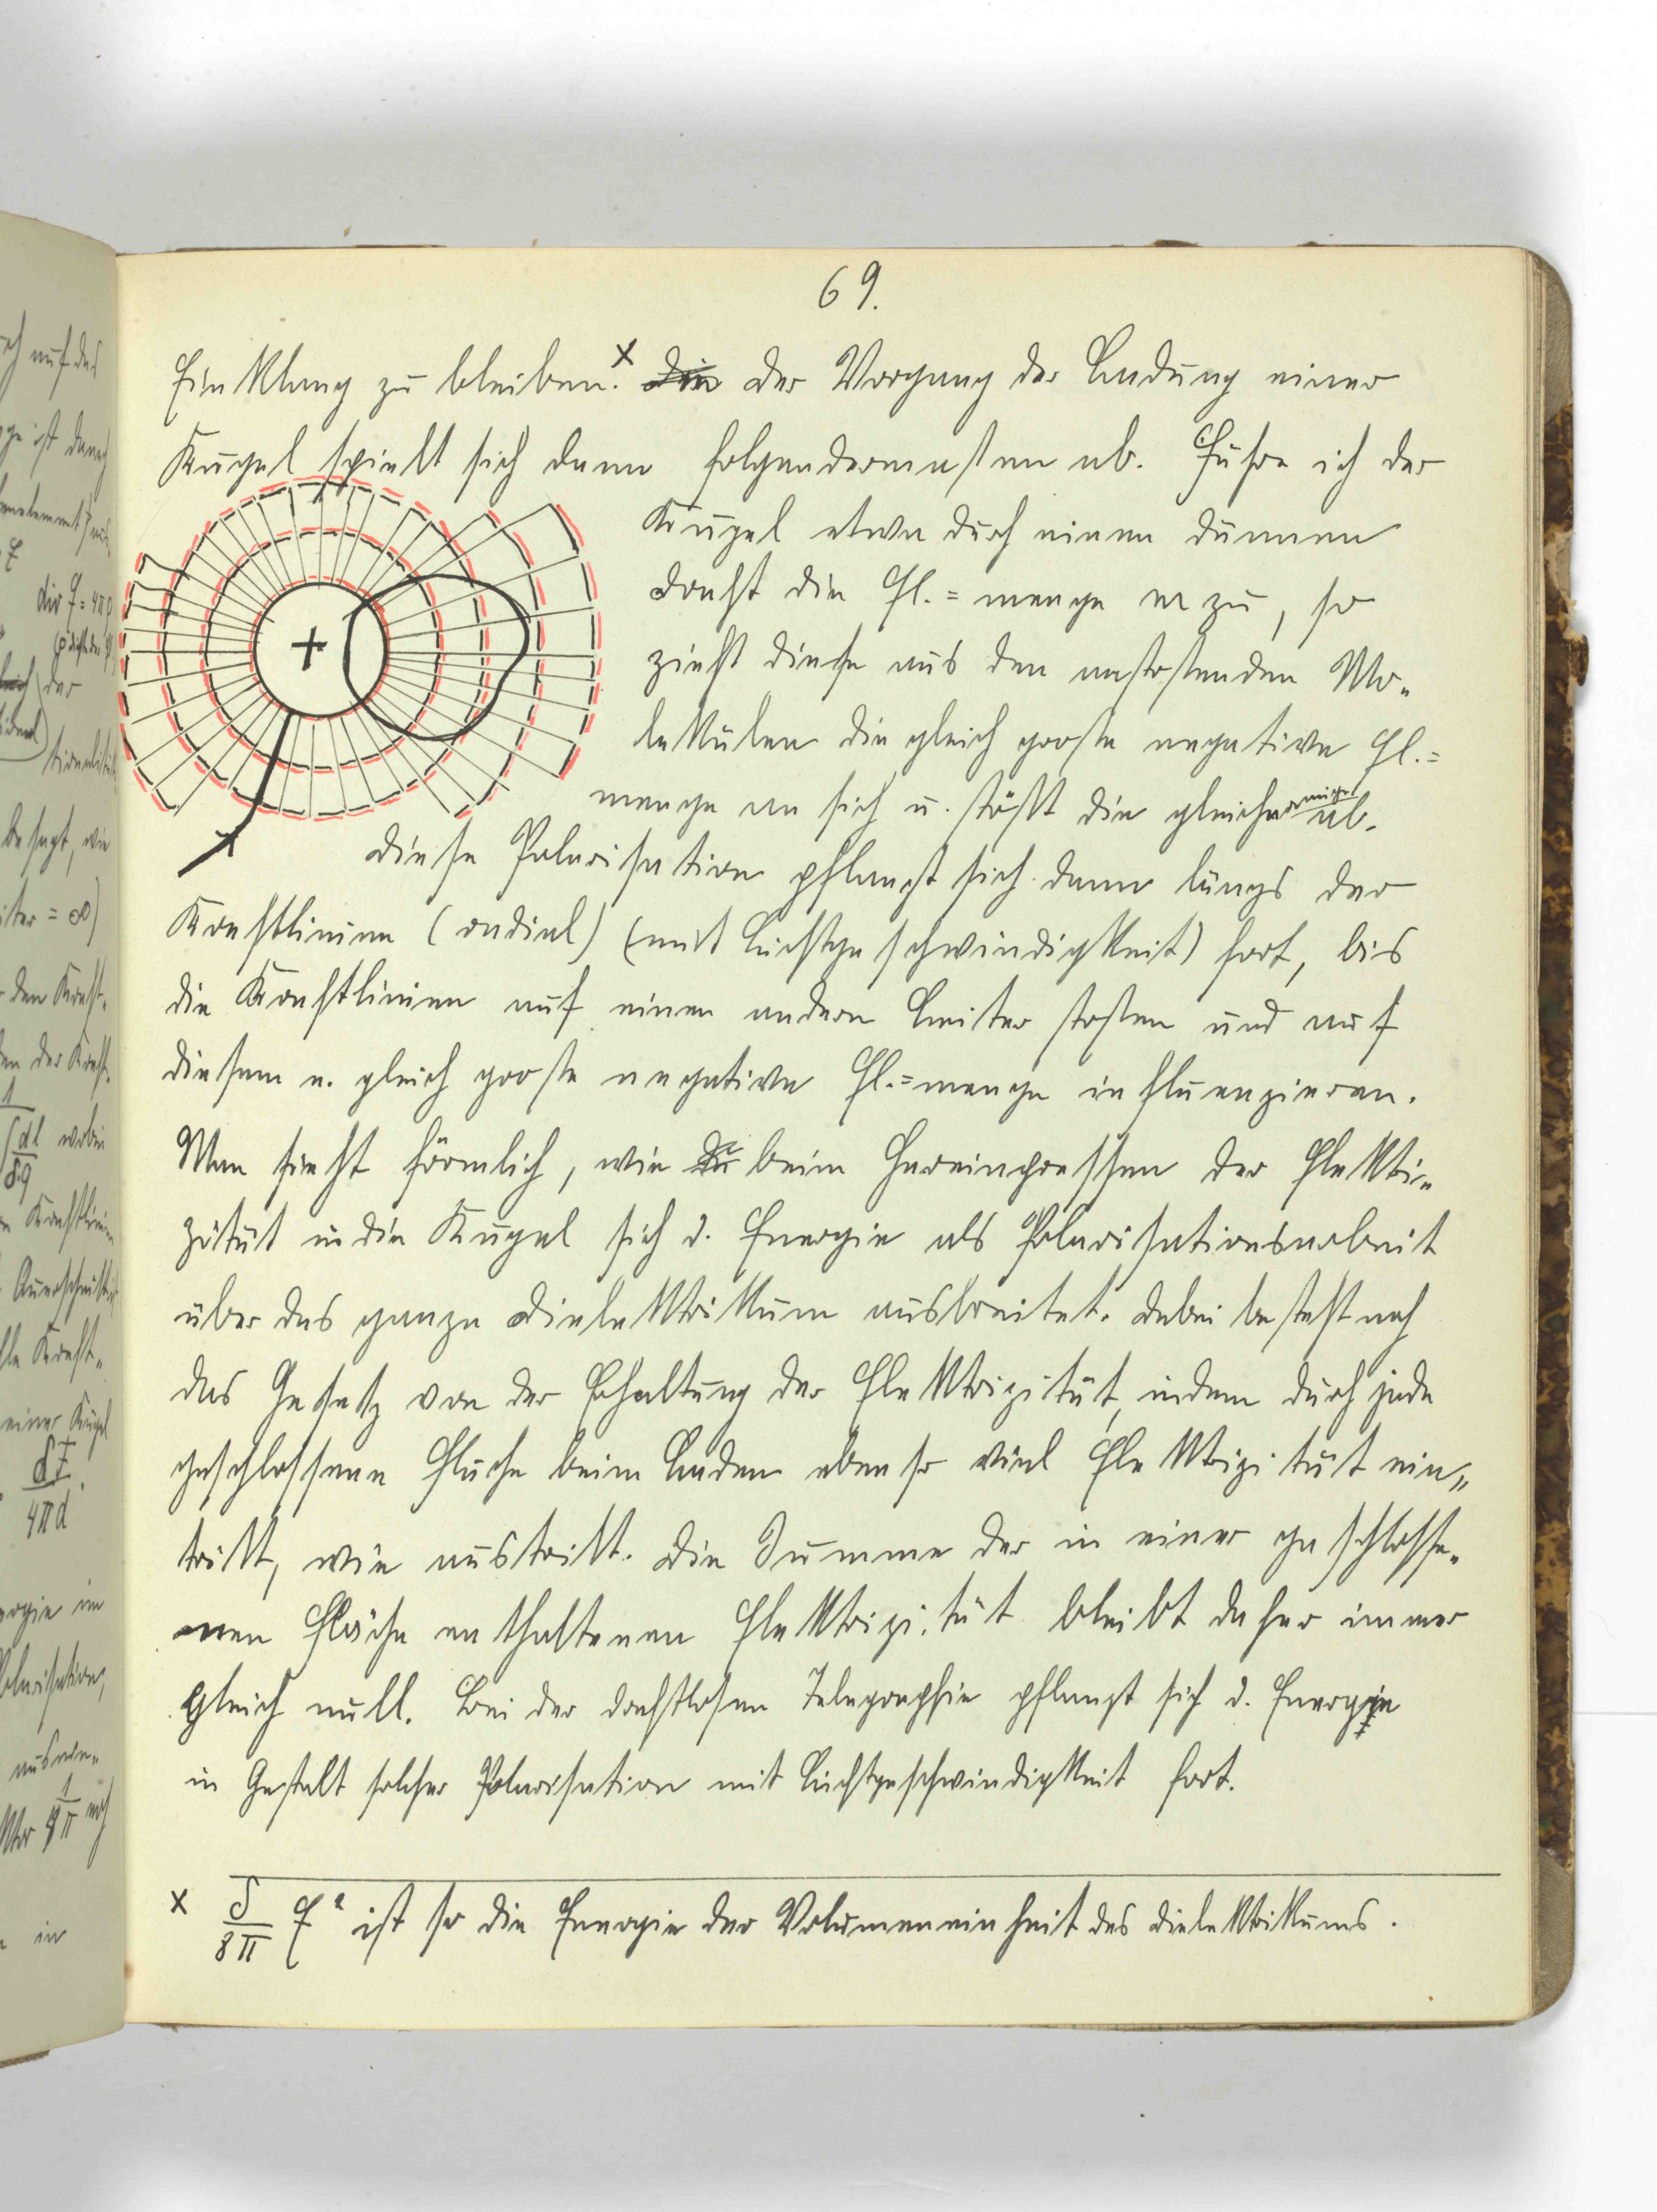 69.
Einklang zu bleiben.ˣ Die Der Vorgang der Ladung einer
Kugel spielt sich dann folgendermaßen ab. Führe ich der
Kugel etwa durch einen dünnen
Draht die El.=menge m zu, so
zieht diese aus den anstoßenden Mo„
lekülen die gleich große negative El.=
menge an sich u. stößt die gleichnamige ab.
Diese Polarisation pflanzt sich dann längs der
Kraftlinien (radial) (mit Lichtgeschwindigkeit) fort, bis
die Kraftlinien auf einen andern Leiter stoßen und auf
diesem e. gleich große negative El.=menge influenzieren.
Man sieht förmlich, wie beim Hereinpressen der Elektri„
zität in die Kugel sich d. Energie als Polarisationsarbeit
über das ganze Dielektrikum ausbreitet. Dabei besteht noch
das Gesetz von der Erhaltung der Elektrizität, indem durch jede
geschlossene Fläche beim Laden eben so viel Elektrizität ein„
tritt, wie austritt. Die Summe der in einer geschlosse„
nen Fläche enthaltenen Elektrizität bleibt daher immer
gleich null. Bei der drahtlosen Telegraphie pflanzt sich d. Energie
in Gestalt solcher Polarisation mit Lichtgeschwindigkeit fort.
x δ/8π F² ist so die Energie der Volumeneinheit des Dielektrikums.